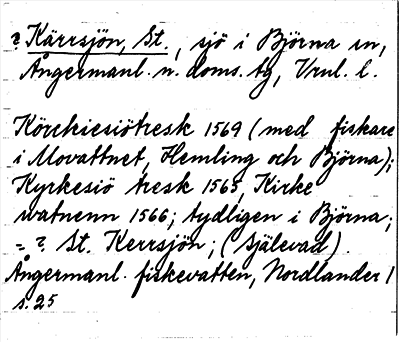 ? Kärrsjön, St., sjö i Björna sn,
Ångermanl. n. doms. tg, Vnrl. l.
Körckiesiötresk 1569 (med fiskare
i Movattnet, Hemling och Björna);
Kyrkesiö tresk 1565, Kirke
watnenn 1566; tydligen i Björna;
= ? St. Kerrsjön; (Själevad).
Ångermanl. fiskevatten, Nordlander 1
s. 25